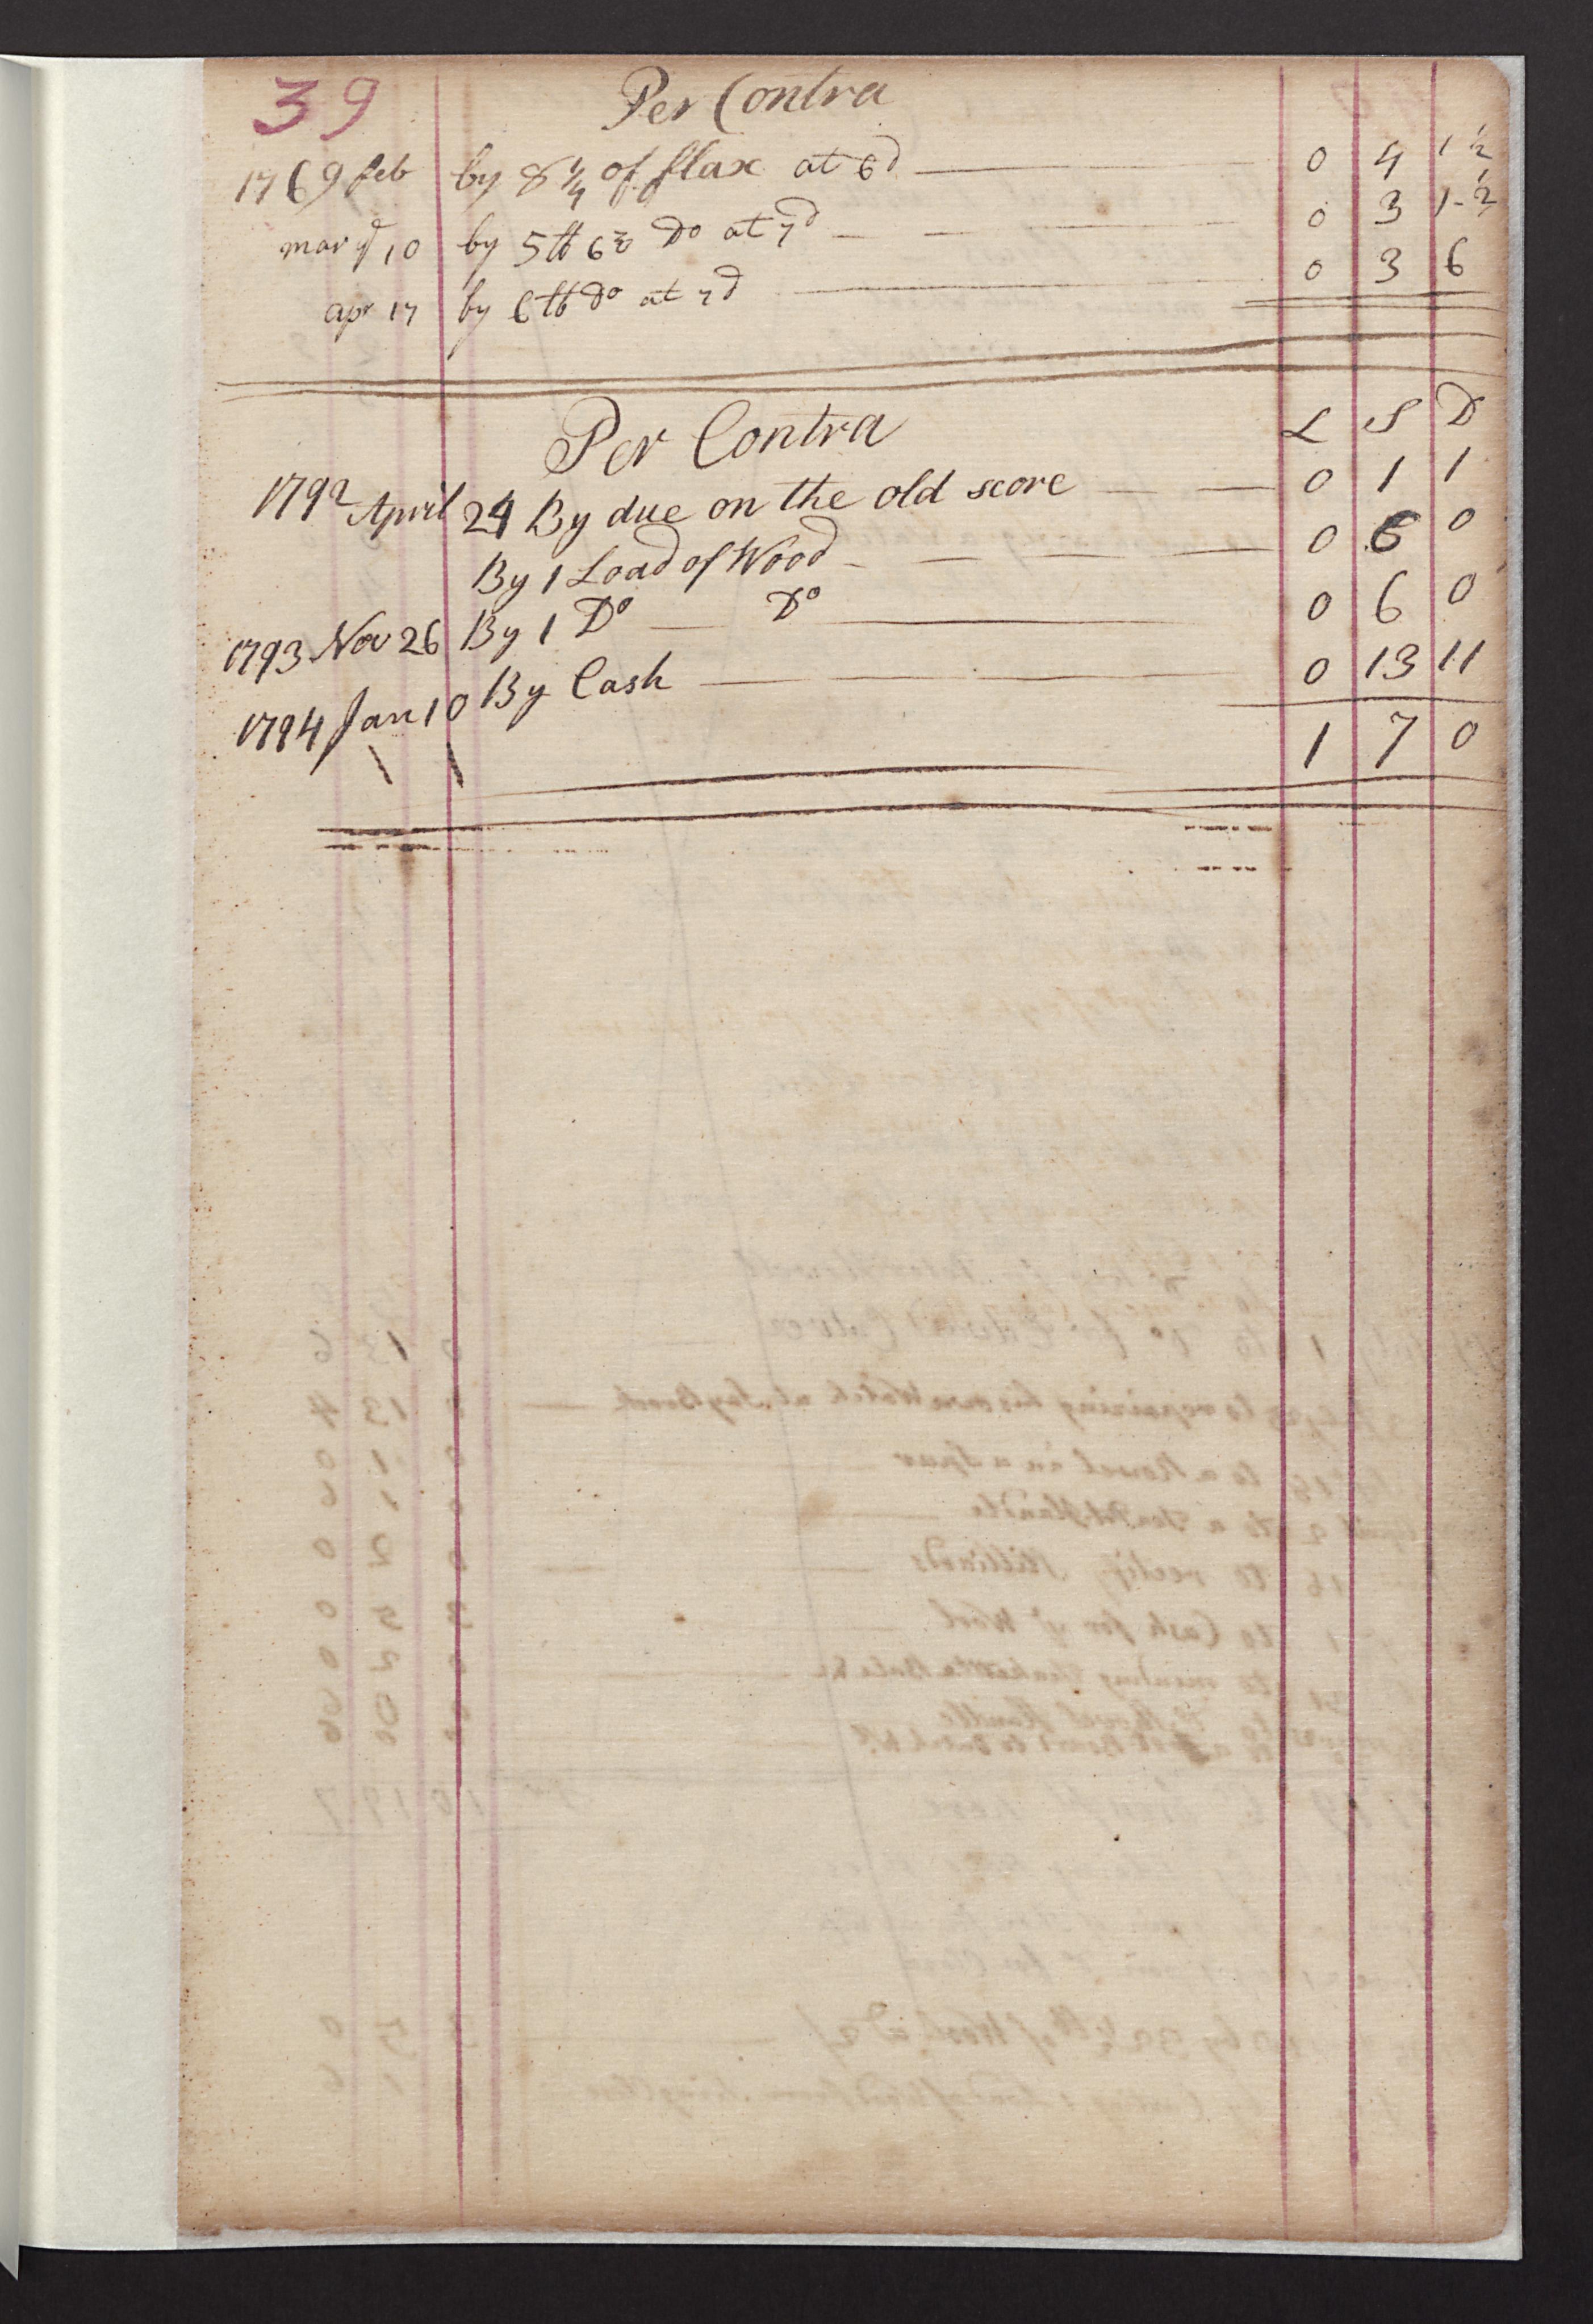 39 Per Contra
1769 feb by 8 1/4 of flax at 6d 0 4 1 1/2
mar ye 10 by 5 lb 6 oz Do at 7d 0 3 1-1/2
apr 17 by 6 lb do at 7d 0 3 6
Per Contra L S D
1792 April 24 By due on the old score 0 1 1
By 1 Load of Wood 0 6 0
1793 Nov 26 By 1 Do Do 0 6 0
1794 Jan 10 By Cash 0 13 11
1 7 0